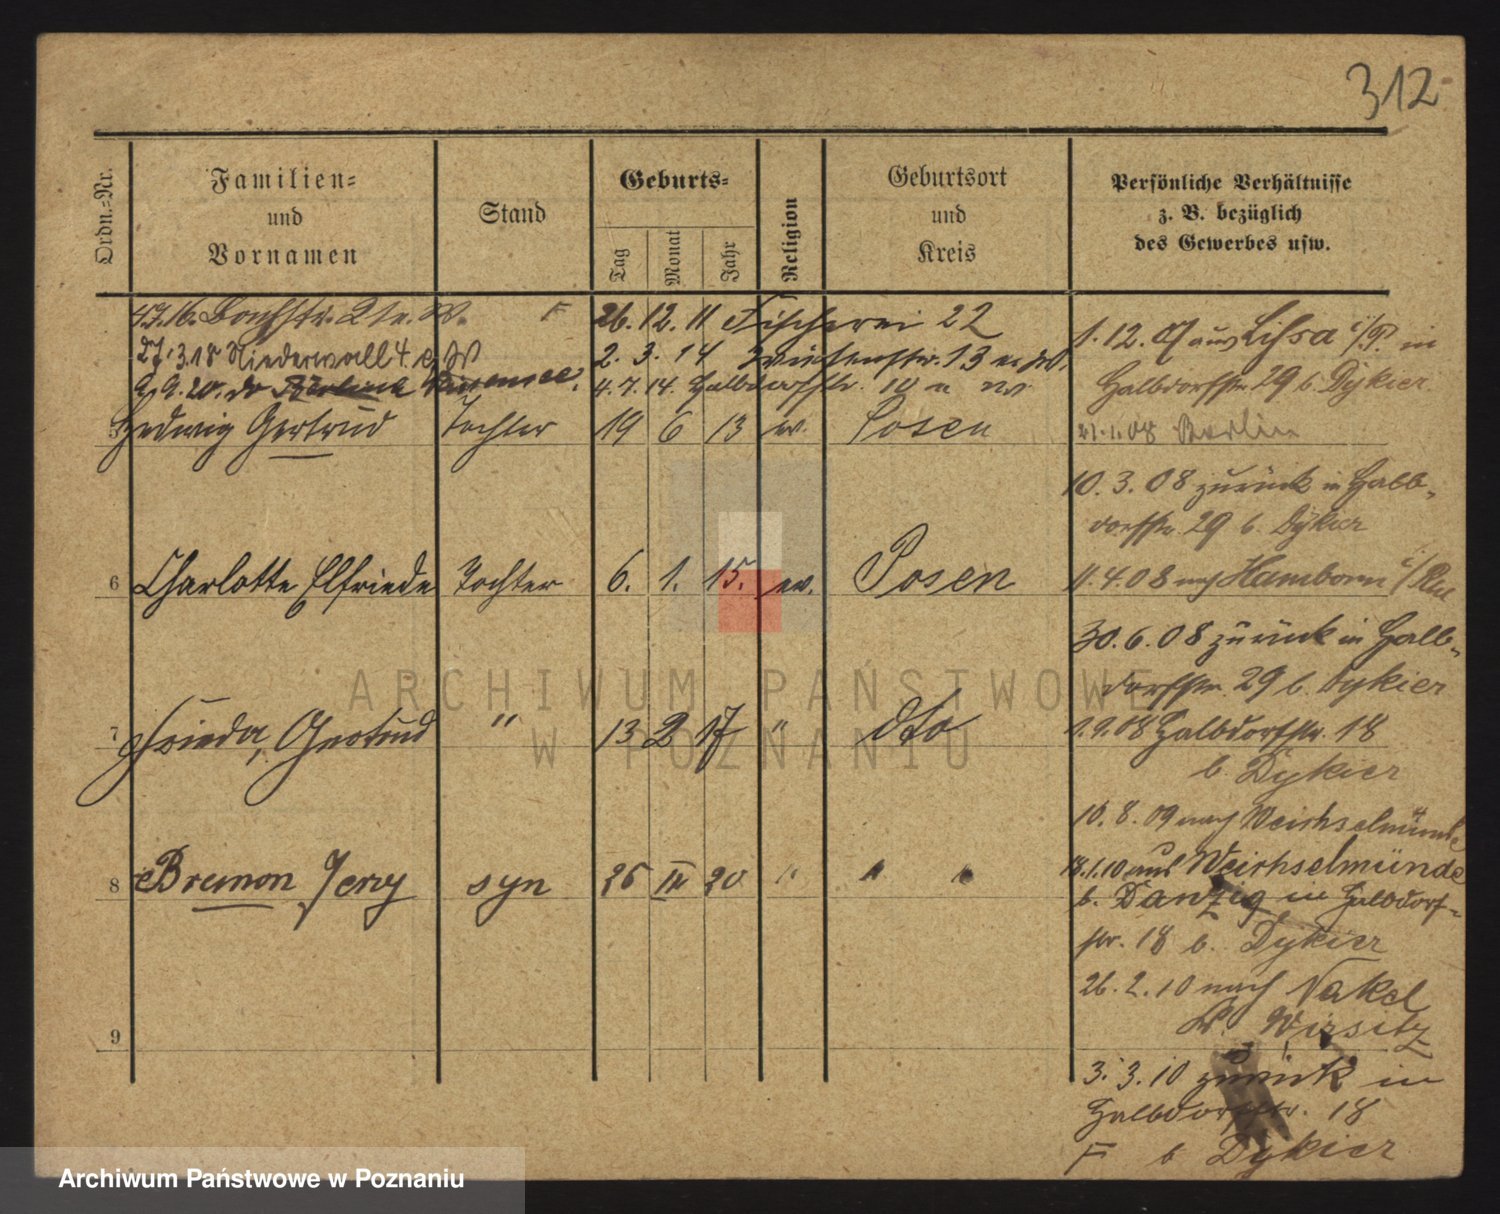 312
Ordn.=Nr.
Familien=
und
Vornamen
Stand
Geburts=
Tag
Monat
Jahr
Religion
Geburtsort
und
Kreis
Persönliche Verhältnisse
z. B. bezüglich
des Gewerbes usw.
4.7.16. Bachstr. W. F 26.12.11 Fischerei 22
27.3.18 Niederwall 4. W 2. 3. 14 13
9.9.20. do 4.7.14. Halbdorfstr. 10
Hedwig Gertrud Tochter 19 6 13 ev. Posen
6 Charlotte Elfriede Tochter 6. 1. 15. ev. Posen
7 Frieda, Gertrud " 13 2 17 " dto
8 Bremon Jerzy syn 26 IV 20 " " "
9
1.12.07 aus Lissa i/P. in
Halbdorfstr. 29 b. Dykier.
21.1.08 Berlin
10.3.08 zurück in Halb-
dorfstr. 29 b. Dykier
11.4.08 nach Hamborn
30.6.08 zurück in Halb-
dorfstr. 29 b. Dykier
1.9.08 Halbdorfstr. 18
b. Dykier
10.8.09 nach Weichselmünde
18.1.10 aus Weichselmünde
b. Danzig in Halbdorf-
str. 18 b. Dykier
26.2.10 nach Nakel
Kr. Wirsitz
3.3.10 zurück in
Halbdorfstr. 18
F b Dykier
ARCHIWUM PAŃSTWOWE
W POZNANIU
Archiwum Państwowe w Poznaniu